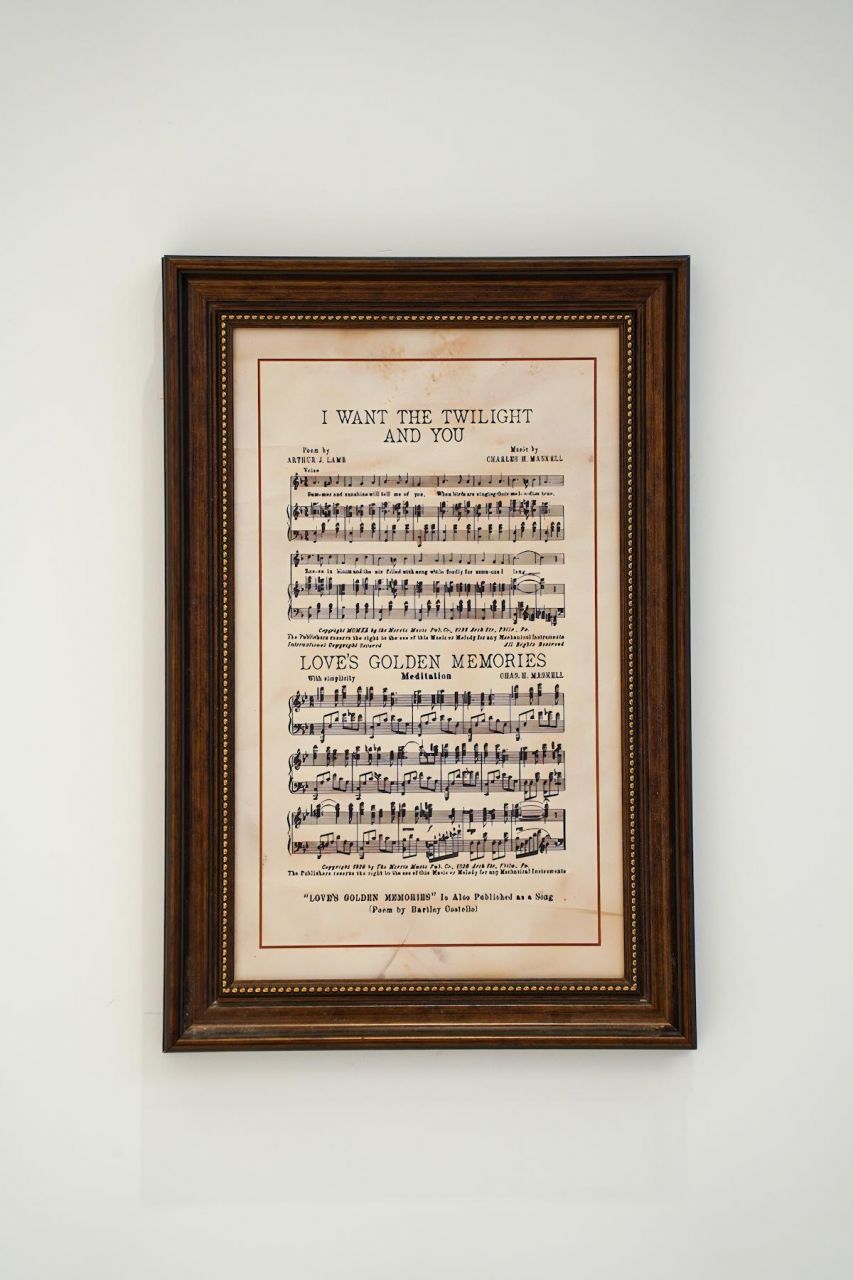 I WANT THE TWILIGHT
AND YOU
Poem by
ARTHUR J. LAMB
Music by
CHARLES H. MAXNELL
Voice
Summer and sunshine will tell me of you, When birds are singing their melodies true,
in bloom and the air filled with song while fondly for someone I long
Copyright by the Morris Music Pub. Co., Arch Str., Phila., Pa.
The Publishers reserve the right to the use of this Music or Melody for any Mechanical Instruments
International Copyright Secured All Rights Reserved
LOVE'S GOLDEN MEMORIES
With simplicity Meditation CHAS. H. MAXNELL
Copyright by The Morris Music Pub. Co., Arch Str., Phila., Pa.
The Publishers reserve the right to the use of this Music or Melody for any Mechanical Instruments
"LOVE'S GOLDEN MEMORIES" Is Also Published as a Song
(Poem by Bartley Costello)